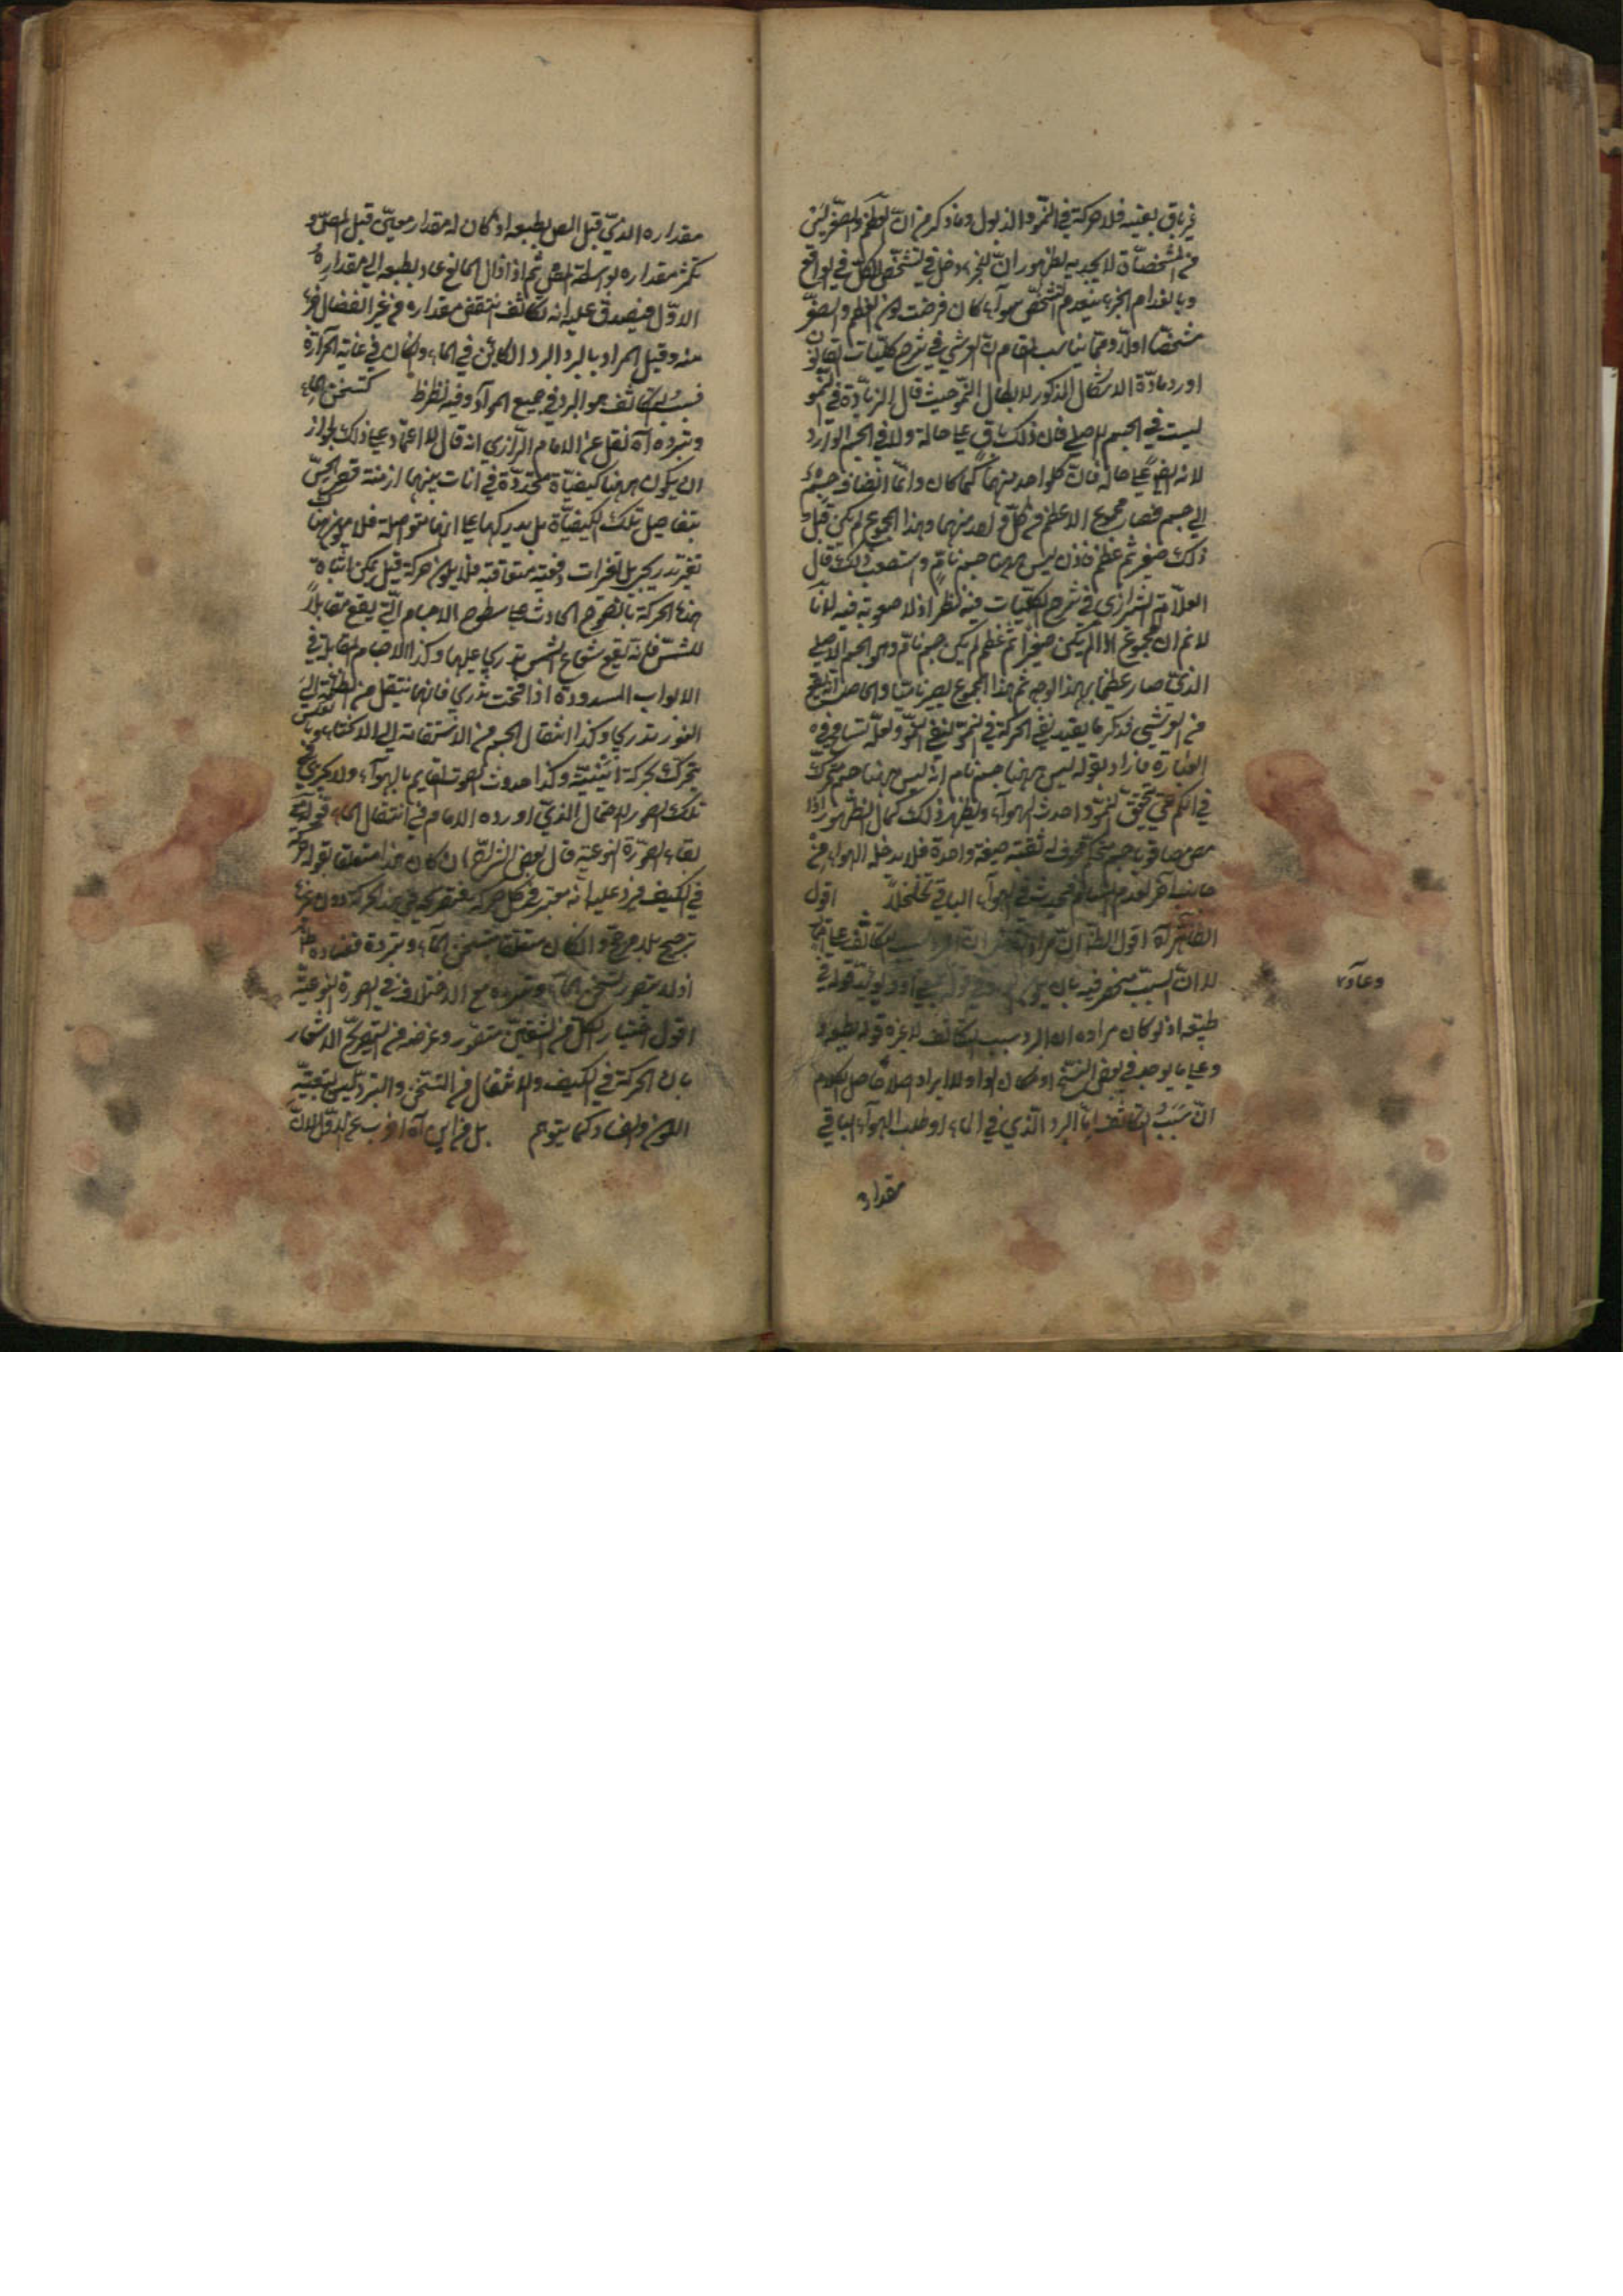 غير باق بعينه فلا حركة في النمو والذبول وما ذكر من ان العظم والصغر ليس
من المشخصات لا يجديه لظهور ان للجزء مدخل في تشخص الكل في الواقع
وبانعدام الجزء ينعدم التشخص سواء كان فرضت لون العظم والصغر
مشخصا اولا ومما يناسب المقام ان القرشي في شرح كليات القانون
اورد مادة الاشكال المذكور لابطال النمو حيث قال الزيادة في النمو
ليست في الجسم الاصلي فان ذلك باق على حاله ولا في الجسم الوارد
لانه ايضا على حاله فان كل واحد منهما كما كان وانما انضاف جسم
الى جسم فصار مجموع الاعظم من كل واحد منهما وهذا المجموع لم يكن قبل
ذلك صغير ثم عظم فاذن ليس ههنا جسم نام واستصعب ذلك قال
العلامة الشيرازي في شرح الكليات فيه نظر اذ لا صعوبة فيه لانا
لا نم ان المجموع اذا لم يكن صغيرا ثم عظم لم يكن جسم نام وهو الجسم الاصلي
الذي صار عظيما بهذا الوجه نعم هذا المجموع ليس ناميا والحاصل انه
من القرشي ذكر ما يفيد نفي الحركة في النمو لنفي النمو ولعله تسامح في
العبارة فاراد بقوله ليس ههنا جسم نام انه ليس ههنا جسم متحرك
في الكم حتى تحقق النمو واحدث الهواء وليظهر ذلك كمال الظهور اذا
جانب اخر لعدم فيحدث في الهواء الباقي تخلخلا اقول
الظاهر اه اقول الظ ان مراده
لا ان السبب منحصر فيه بان
طبيعة اذ لو كان مراده ان البرد سبب التكاثف لا غيره قوله بطبعه
وعلى ما يوجد في بعض النسخ او مكان الواو لا ايراد اصلا حاصل الكلام
ان سبب التكاثف اما البرد الذي في الماء او طلب الهواء الباقي
وعاد
مقداره
مقداره الذي قبل المص بطبعه اذ كان له مقدار معين قبل المص و
تكثر مقداره بواسطة المص ثم اذا زال المانع عاد بطبعه الى مقداره
الاول فيصدق عليه انه تكاثف انتقص مقداره من غير انفصال جزء
منه وقيل المراد بالبرد البرد الكائن في الماء ولو كان في غاية الحرارة
فسبب التكاثف هو البرد في جميع المواد وفيه نظر ظ كتسخن الماء
وتبرده اه نقل عن الامام الرازي انه قال لا اعتماد على ذلك لجواز
ان يكون ههنا كيفية متجددة في انات بينهما ازمنة قصر الحس
بتفاصيل تلك الكيفية بل يدركها على انها متواصلة فلا يكون هناك
تغير تدريجي بل تغيرات دفعية متعاقبة فلا يكون حركة قيل يمكن اثبات
هذه الحركة بالضوء الحادث على سطوح الاجسام التي يقع مقابلا
للشمس فانه يقع شعاع الشمس تدريجا عليها وكذا الاجسام المقابلة في
الابواب المسدودة اذا فتحت تدريجا فانها تنتقل من الظلمة الى
النور تدريجا وكذا انتقال الجسم من الاستقامة الى الانحناء
يتحرك بحركة اينية وكذا حدوث الصوت القايم بالهواء ولا يجري في
تلك الصور الاحتمال الذي اورده الامام في انتقال الماء قوله مع
بقاء الصورة النوعية قال بعض الشراح ان كان هذا متعلقا بقوله
في الكيف فيرد عليه انه معتبر في كل حركة فتصريحه في هذه الحركة دون غيرها
ترجيح بلا مرجح وان كان متعلقا بتسخن الماء وتبرده ففساده ظاهر
اذ لا يتصور تسخن الماء وتبرده مع الاختلاف في الصورة النوعية
اقول اختيار كل من الشقين متصور وغرضه من التصريح الاشعار
بان الحركة في الكيف والانتقال من التسخن والتبرد ليس بتبعية
الكون والفساد كما يتوهم بل من اين اه اضرب عن الاول لان